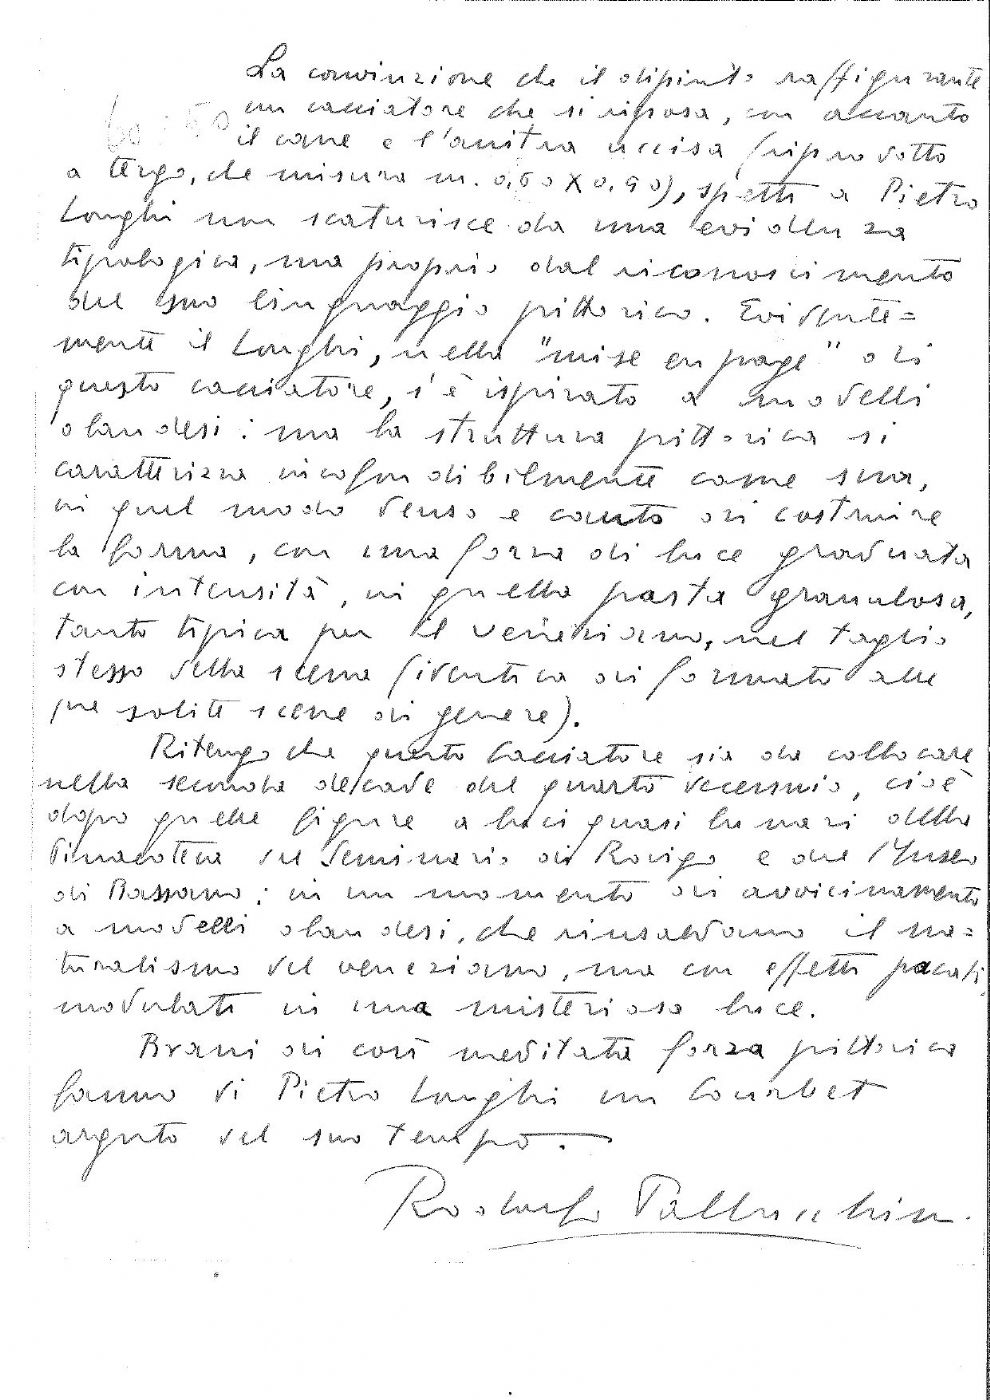 La convinzione che il dipinto raffigurante
un cacciatore che si riposa, con accanto
60 : 50
il cane e l'anitra uccisa (riprodotto
a tergo, che misura m. 0,60 X 0,90), spetti a Pietro
Longhi non scaturisce da una evidenza
tipologica, ma proprio dal riconoscimento
del suo linguaggio pittorico. Evidente=
mente il Longhi, nella "mise en page" di
questo cacciatore, s'è ispirato a modelli
olandesi: ma la struttura pittorica si
caratterizza inconfondibilmente come sua,
in quel modo denso e cauto di costruire
la forma, con una forza di luce graduata
con intensità, in quella pasta granulosa,
tanto tipica per il veneziano, nel taglio
stesso della scena (identica di formato alle
sue solite scene di genere).
Ritengo che questo Cacciatore sia da collocare
nella seconda decade del quarto decennio, cioè
dopo quelle figure a luci quasi lunari della
Pinacoteca del Seminario di Rovigo e del Museo
di Bassano: in un momento di avvicinamento
a modelli olandesi, che rinsaldano il na=
turalismo del veneziano, ma con effetti pacati,
modulati in una misteriosa luce.
Brani di così meditata forza pittorica
fanno di Pietro Longhi un Courbet
arguto del suo tempo.
Rodolfo Pallucchini